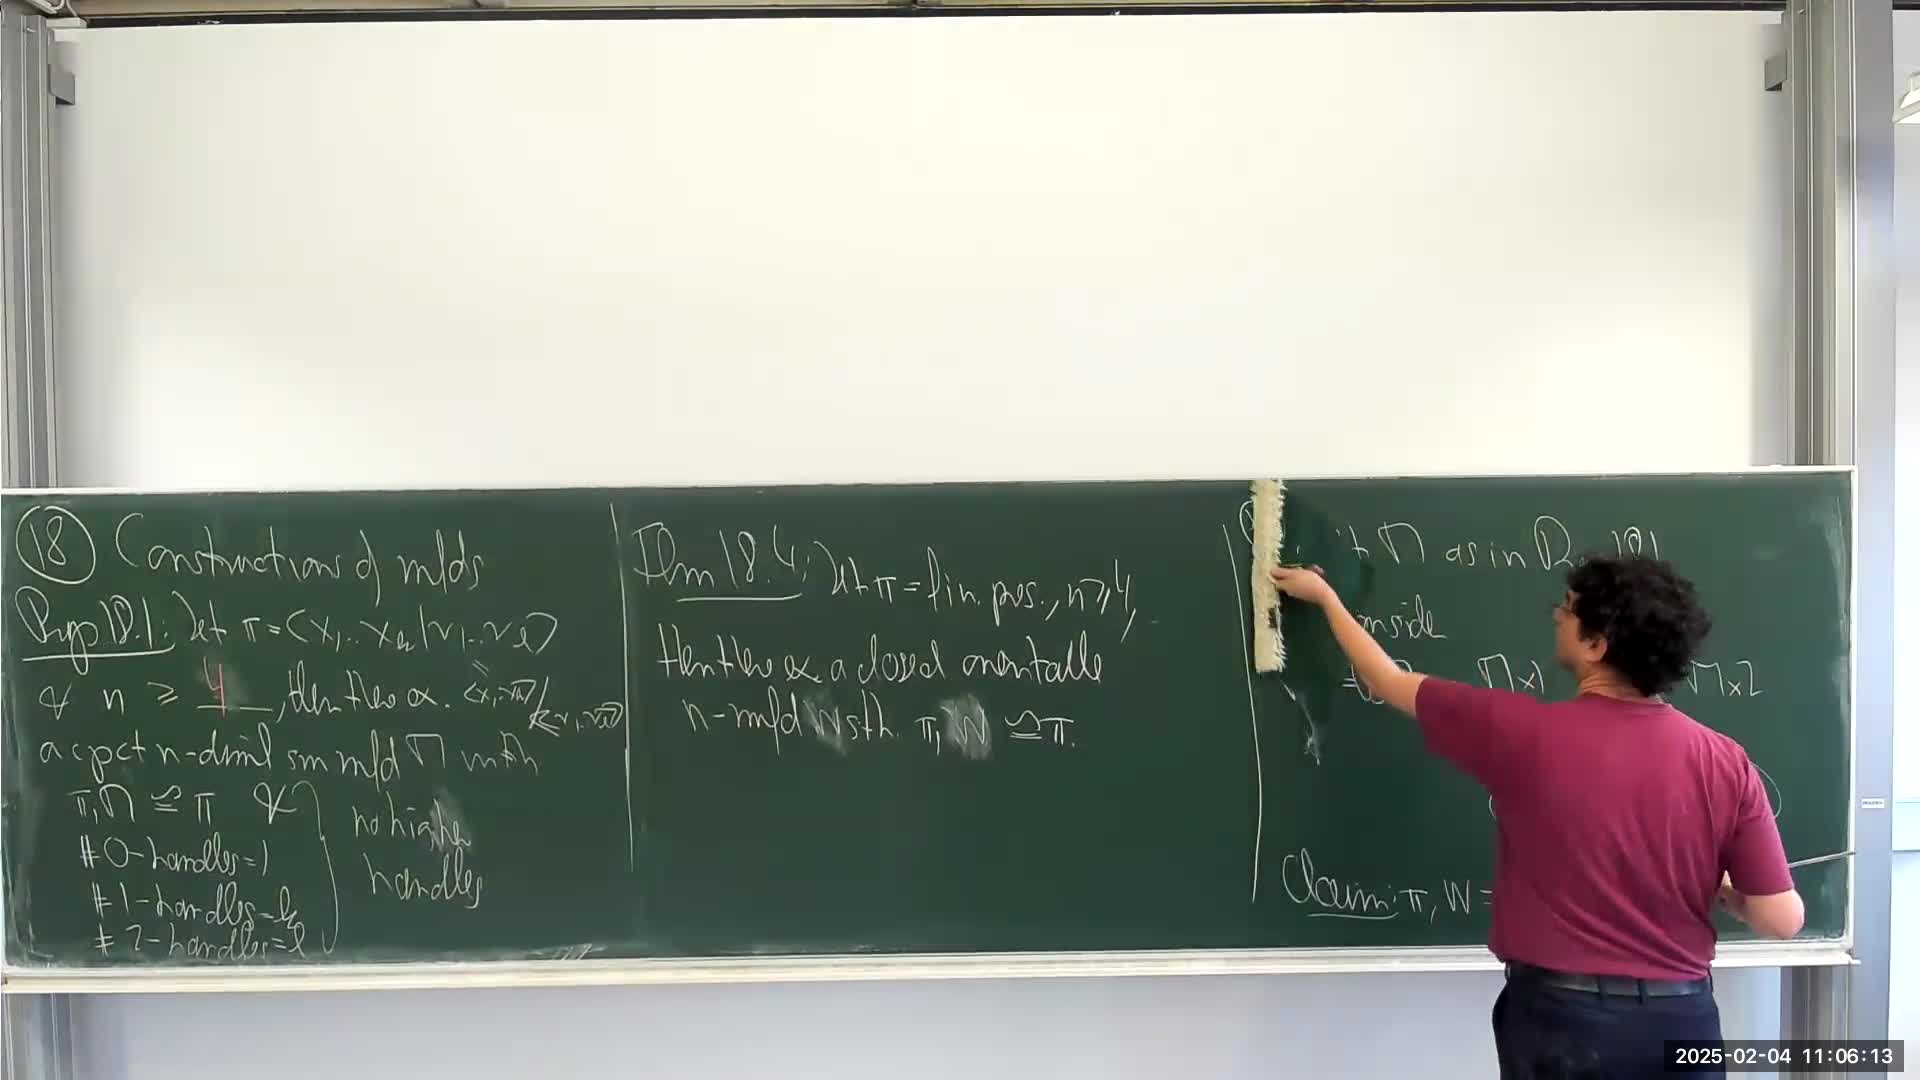 18 Constructions of mfds
Prop 18.1: Let π = ⟨x1..xk | r1..rl⟩
& n ≥ 4, then there ex.
a cpct n-dim'l sm mfd M with
π1 M ≅ π &
# 0-handles = 1
# 1-handles = k
# 2-handles = l
no higher
handles
Thm 18.4: Let π = fin. pres., n ≥ 4,
then there ex. a closed orientable
n-mfd W s.th. π1 W ≅ π.
M as in
inside
M×1
M×2
Claim: π1 W =
2025-02-04 11:06:13